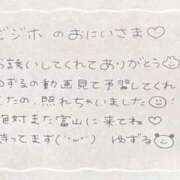 ビジホ のおにいさま♡
お誘いしてくれてありがとう
ゆずるの動画見て予習してくれ
てたの、照れちゃいました
絶対また富山に来てね♡
待ってます(˶ᵕᴗᵕ˶) ゆずる